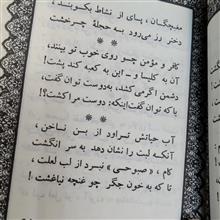 مغبچگان، پای از نشاط بکوبند،
دختر رز می‌رود به حجلهٔ چرخشت
* *
کافر و مؤمن چو روی خوب تو بینند،
آن به کلیسا و ـ این به کعبه کند پشت!
دشمن اگر می‌کشد، به‌دوست توان گفت،
با که توان گفت اینکه: دوست مرا کشت؟!
* *
آب حیاتش تراود از بسن ناخن،
آنکه لبت را نشان دهد به سر انگشت
کام، «صبوحی» نبرد از لب لعلت،
تا که به خون جگر چو غنچه نیاغشت!